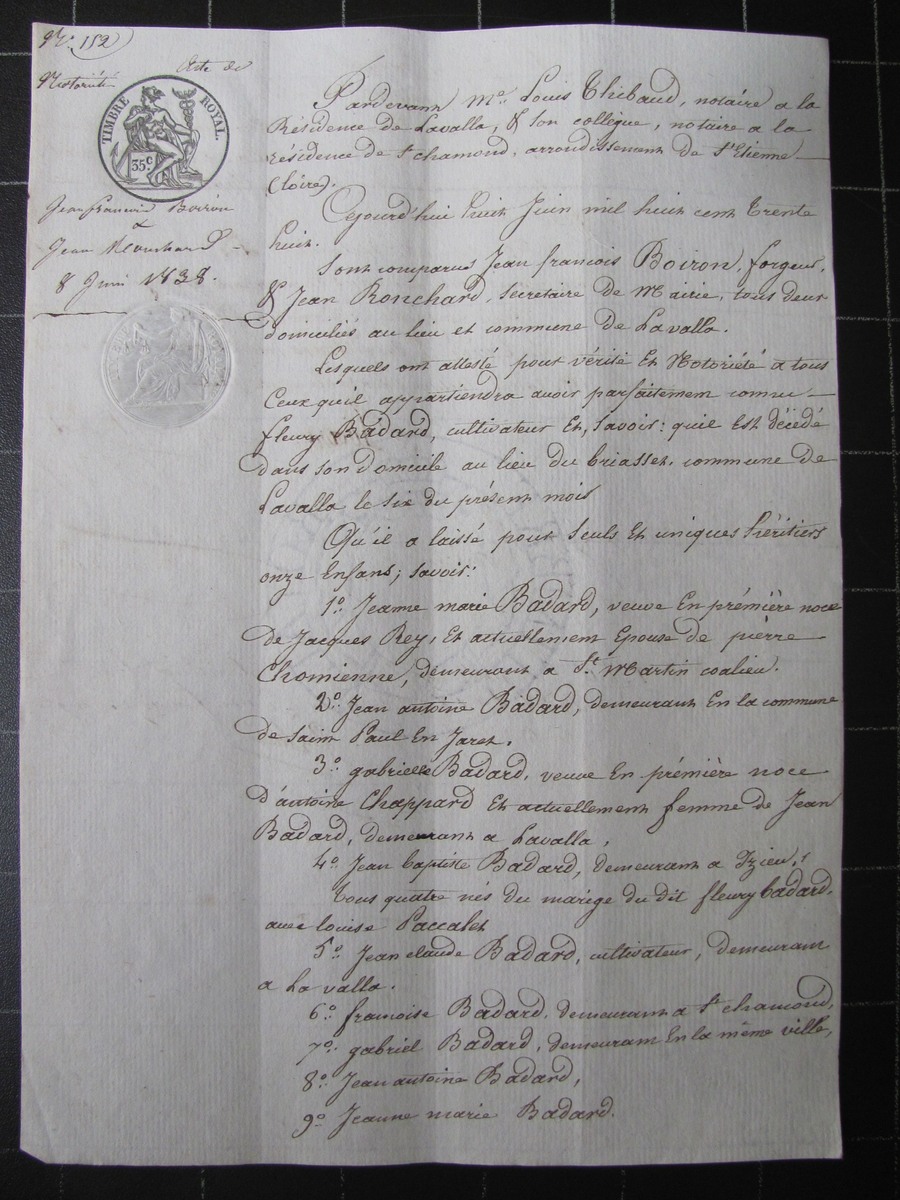 N.° 152
Acte de
Notoriété
TIMBRE ROYAL
35.c
Jean francois Boiron
&
Jean Ronchard
8 Juin 1838.
Pardevant M.e Louis Thibaud, notaire a la
Résidence de Lavalla, & son collègue, notaire a la
résidence de St chamond, arrondissement de St Etienne
(Loire).
Cejourd'hui huit Juin mil huit cent trente
huit.
Sont comparus Jean francois Boiron, forgeur,
& Jean Ronchard, Secrétaire de Mairie, tous deux
domiciliés au lieu et commune de Lavalla.
Lesquels ont attesté pour vérité Et Notoriété a tous
Ceux qu'il appartiendra avoir parfaitement connu
fleury Badard, cultivateur Et, Savoir: qu'il Est décédé
dans son domicile au lieu du briasset, commune de
Lavalla le six du présent mois
Qu'il a laissé pour Seuls Et uniques héritiers
onze Enfans; savoir:
1.° Jeanne marie Badard, veuve En prémière noce
de Jacques Rey, Et actuellement Epouse de pierre
Chomienne, demeurant a St Martin coalieu.
2.° Jean antoine Badard, demeurant En la commune
de Saint Paul En Jaret.
3.° gabrielle Badard, veuve En prémière noce
d'antoine Chappard Et actuellement femme de Jean
Badard, demeurant a Lavalla,
4.° Jean baptiste Badard, demeurant a Izieu,
tous quatre nés du mariege du dit fleury badard,
avec louise Paccalet
5.° Jean claude Badard, cultivateur, demeurant
a La valla.
6.° francoise Badard, demeurant a St chamond,
7.° gabriel Badard, demeurant En la même ville,
8.° Jean antoine Badard,
9.° Jeanne marie Badard.